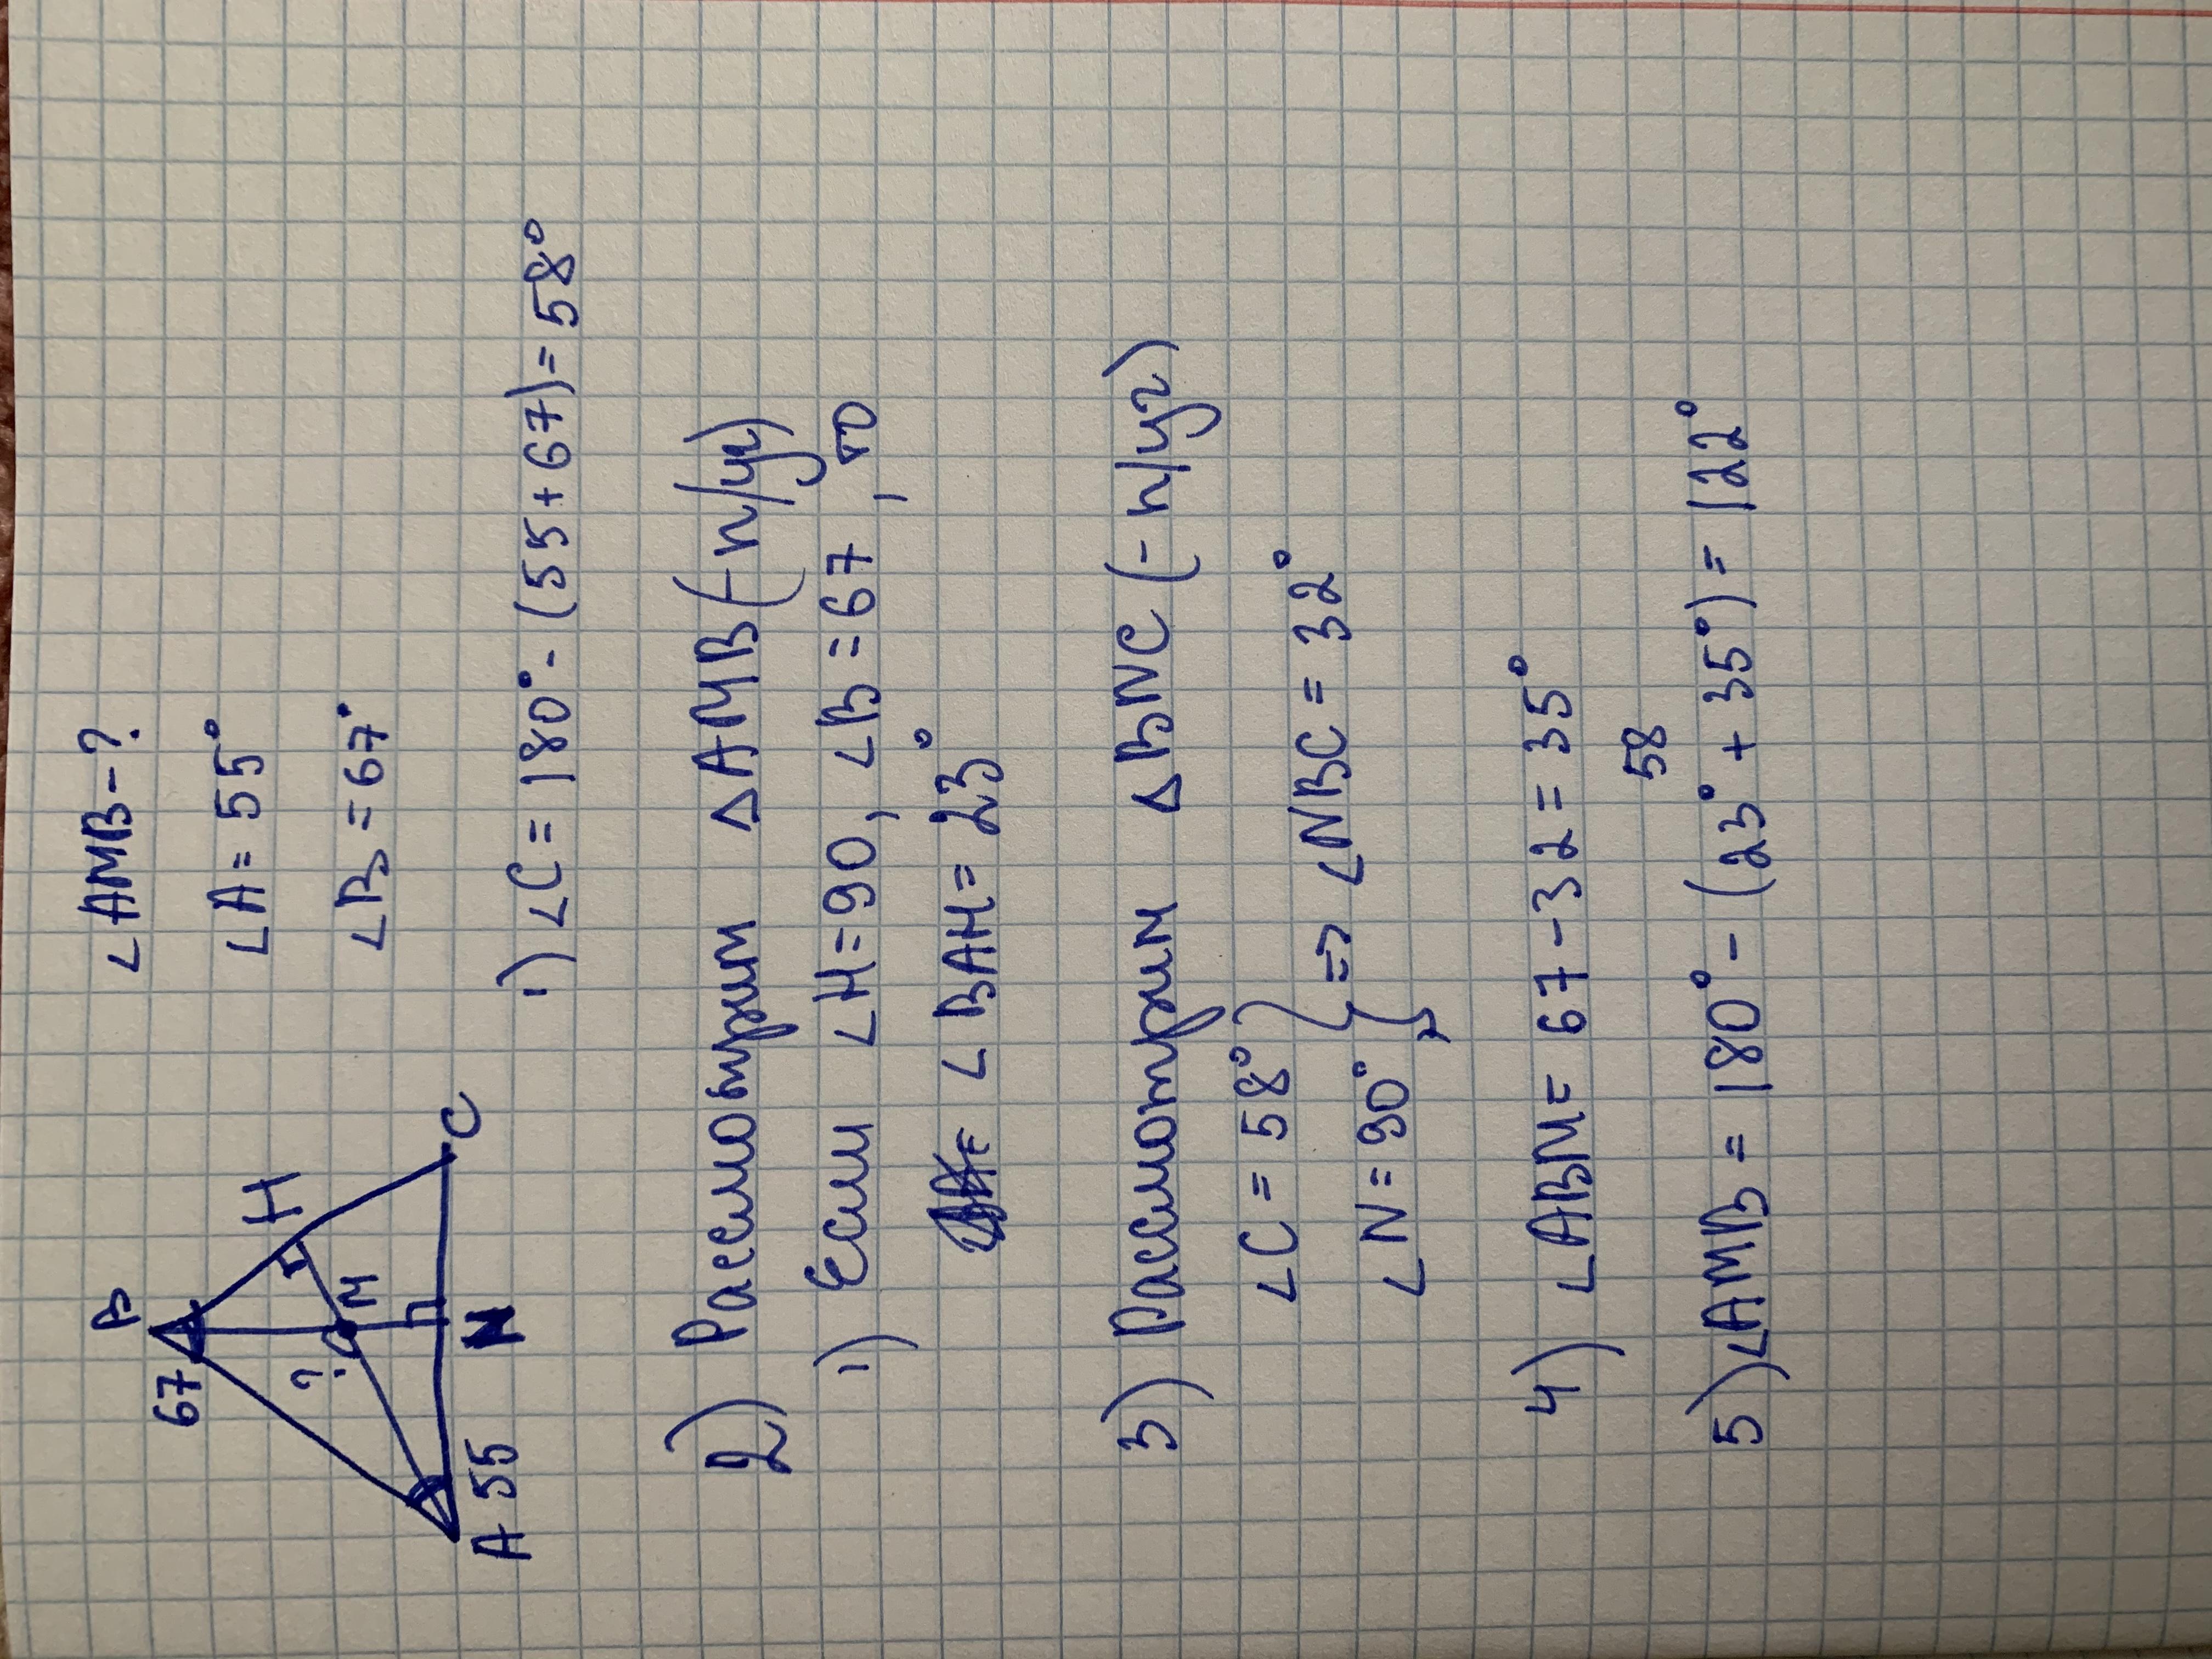 ∠AMB - ?
∠A = 55°
∠B = 67°
B
67
H
?
M
A 55
N
C
1) ∠C = 180° - (55 + 67) = 58°
2) Рассмотрим △AMB (- п/уг)
1) Если ∠H = 90, ∠B = 67, то
∠BAH = 23°
3) Рассмотрим △BNC (- п/уг)
∠C = 58°
∠N = 90° } => ∠NBC = 32°
4) ∠ABM = 67 - 32 = 35°
58
5) ∠AMB = 180° - (23° + 35°) = 122°